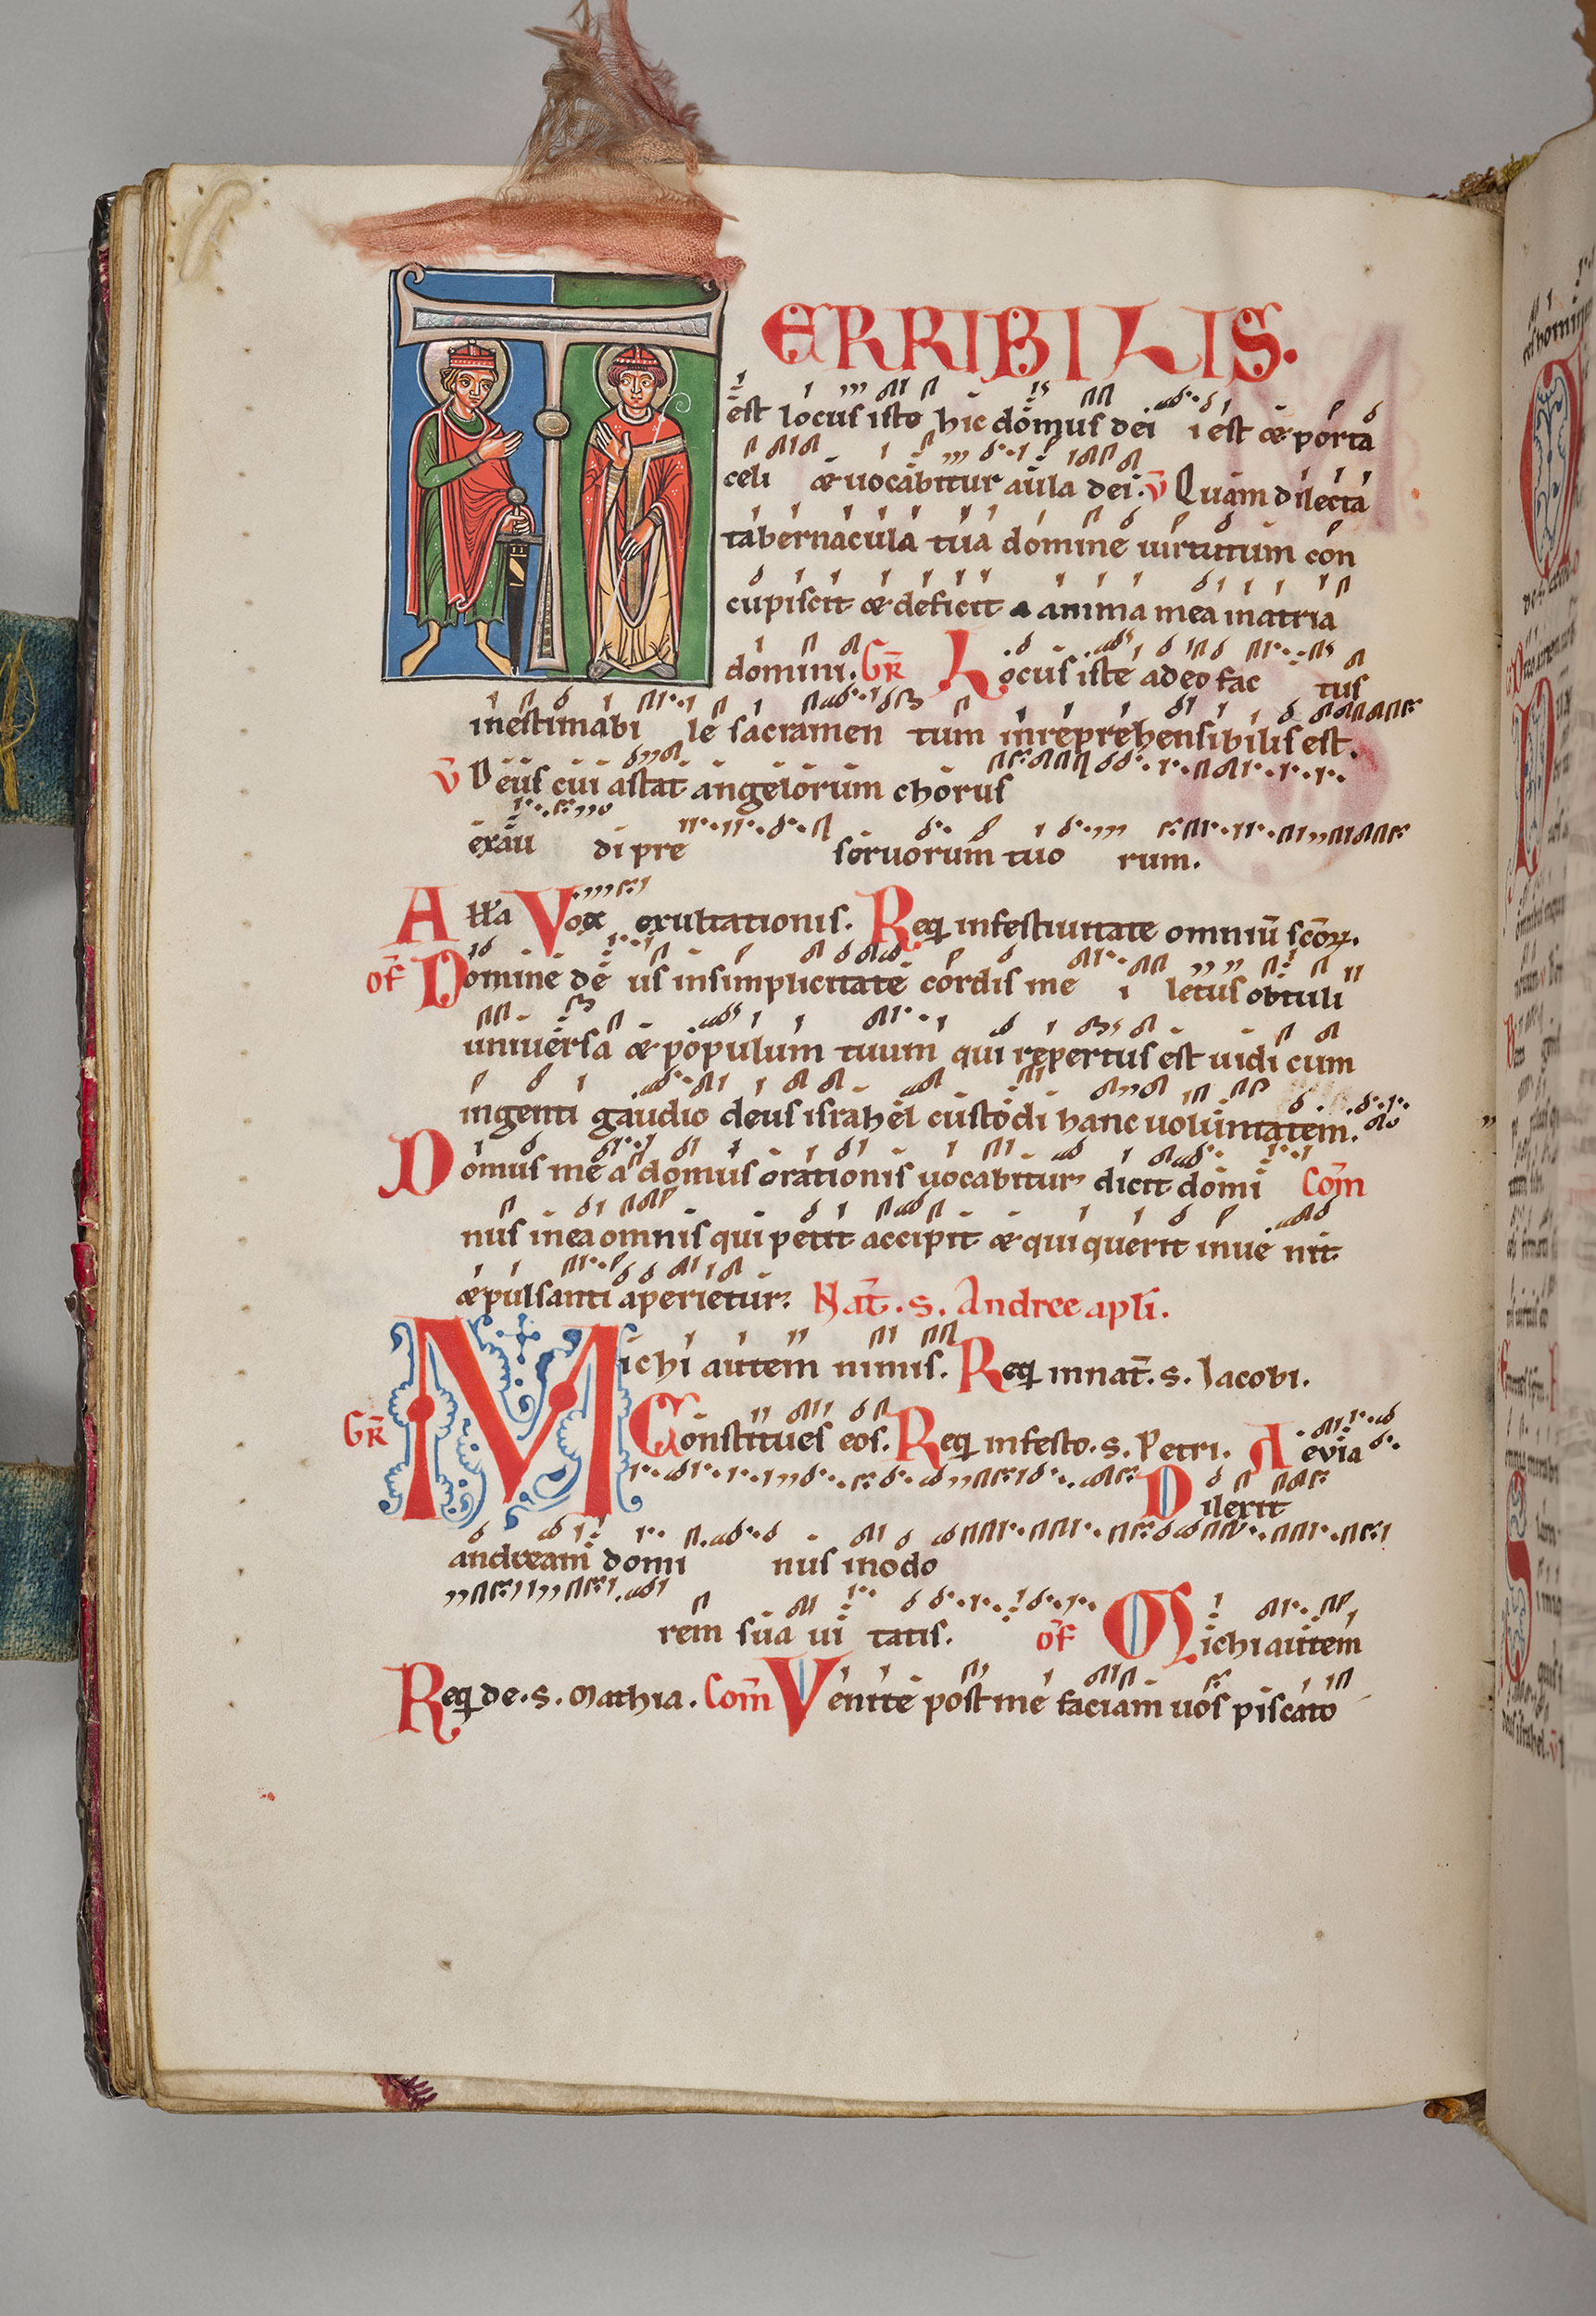 TERRIBILIS.
est locus iste hic domus dei i est & porta
celi & uocabitur aula dei. v̄ Quam dilecta
tabernacula tua domine uirtutum con
cupiscit & deficit anima mea in atria
domini. GR̄ Locus iste a deo fac tus
inestimabi le sacramen tum inreprehensibilis est.
v̄ Deus cui astat angelorum chorus
exau di pre seruorum tuo rum.
A ll'a Vox exultationis. Req in festiuitate omniū scōꝝ.
of̄ Domine de us in simplicitate cordis me i letus obtuli
uniuersa & populum tuum qui repertus est uidi cum
ingenti gaudio deus israhel custodi hanc uoluntatem.
Domus me a domus orationis uocabitur dicit domi Com̄
nus in ea omnis qui petit accipit & qui querit inue nit
& pulsanti aperietur. Nat̄. s. Andree apl̄i.
Michi autem nimis. Req in nat̄. s. Iacobi.
GR̄ Constitues eos. Req in festo. s. Petri. Aevia
Dilexit
andream domi nus in odo
rem sua ui tatis. of̄ Michi autem
Req de. s. Mathia. Com̄ Venite post me faciam uos piscato